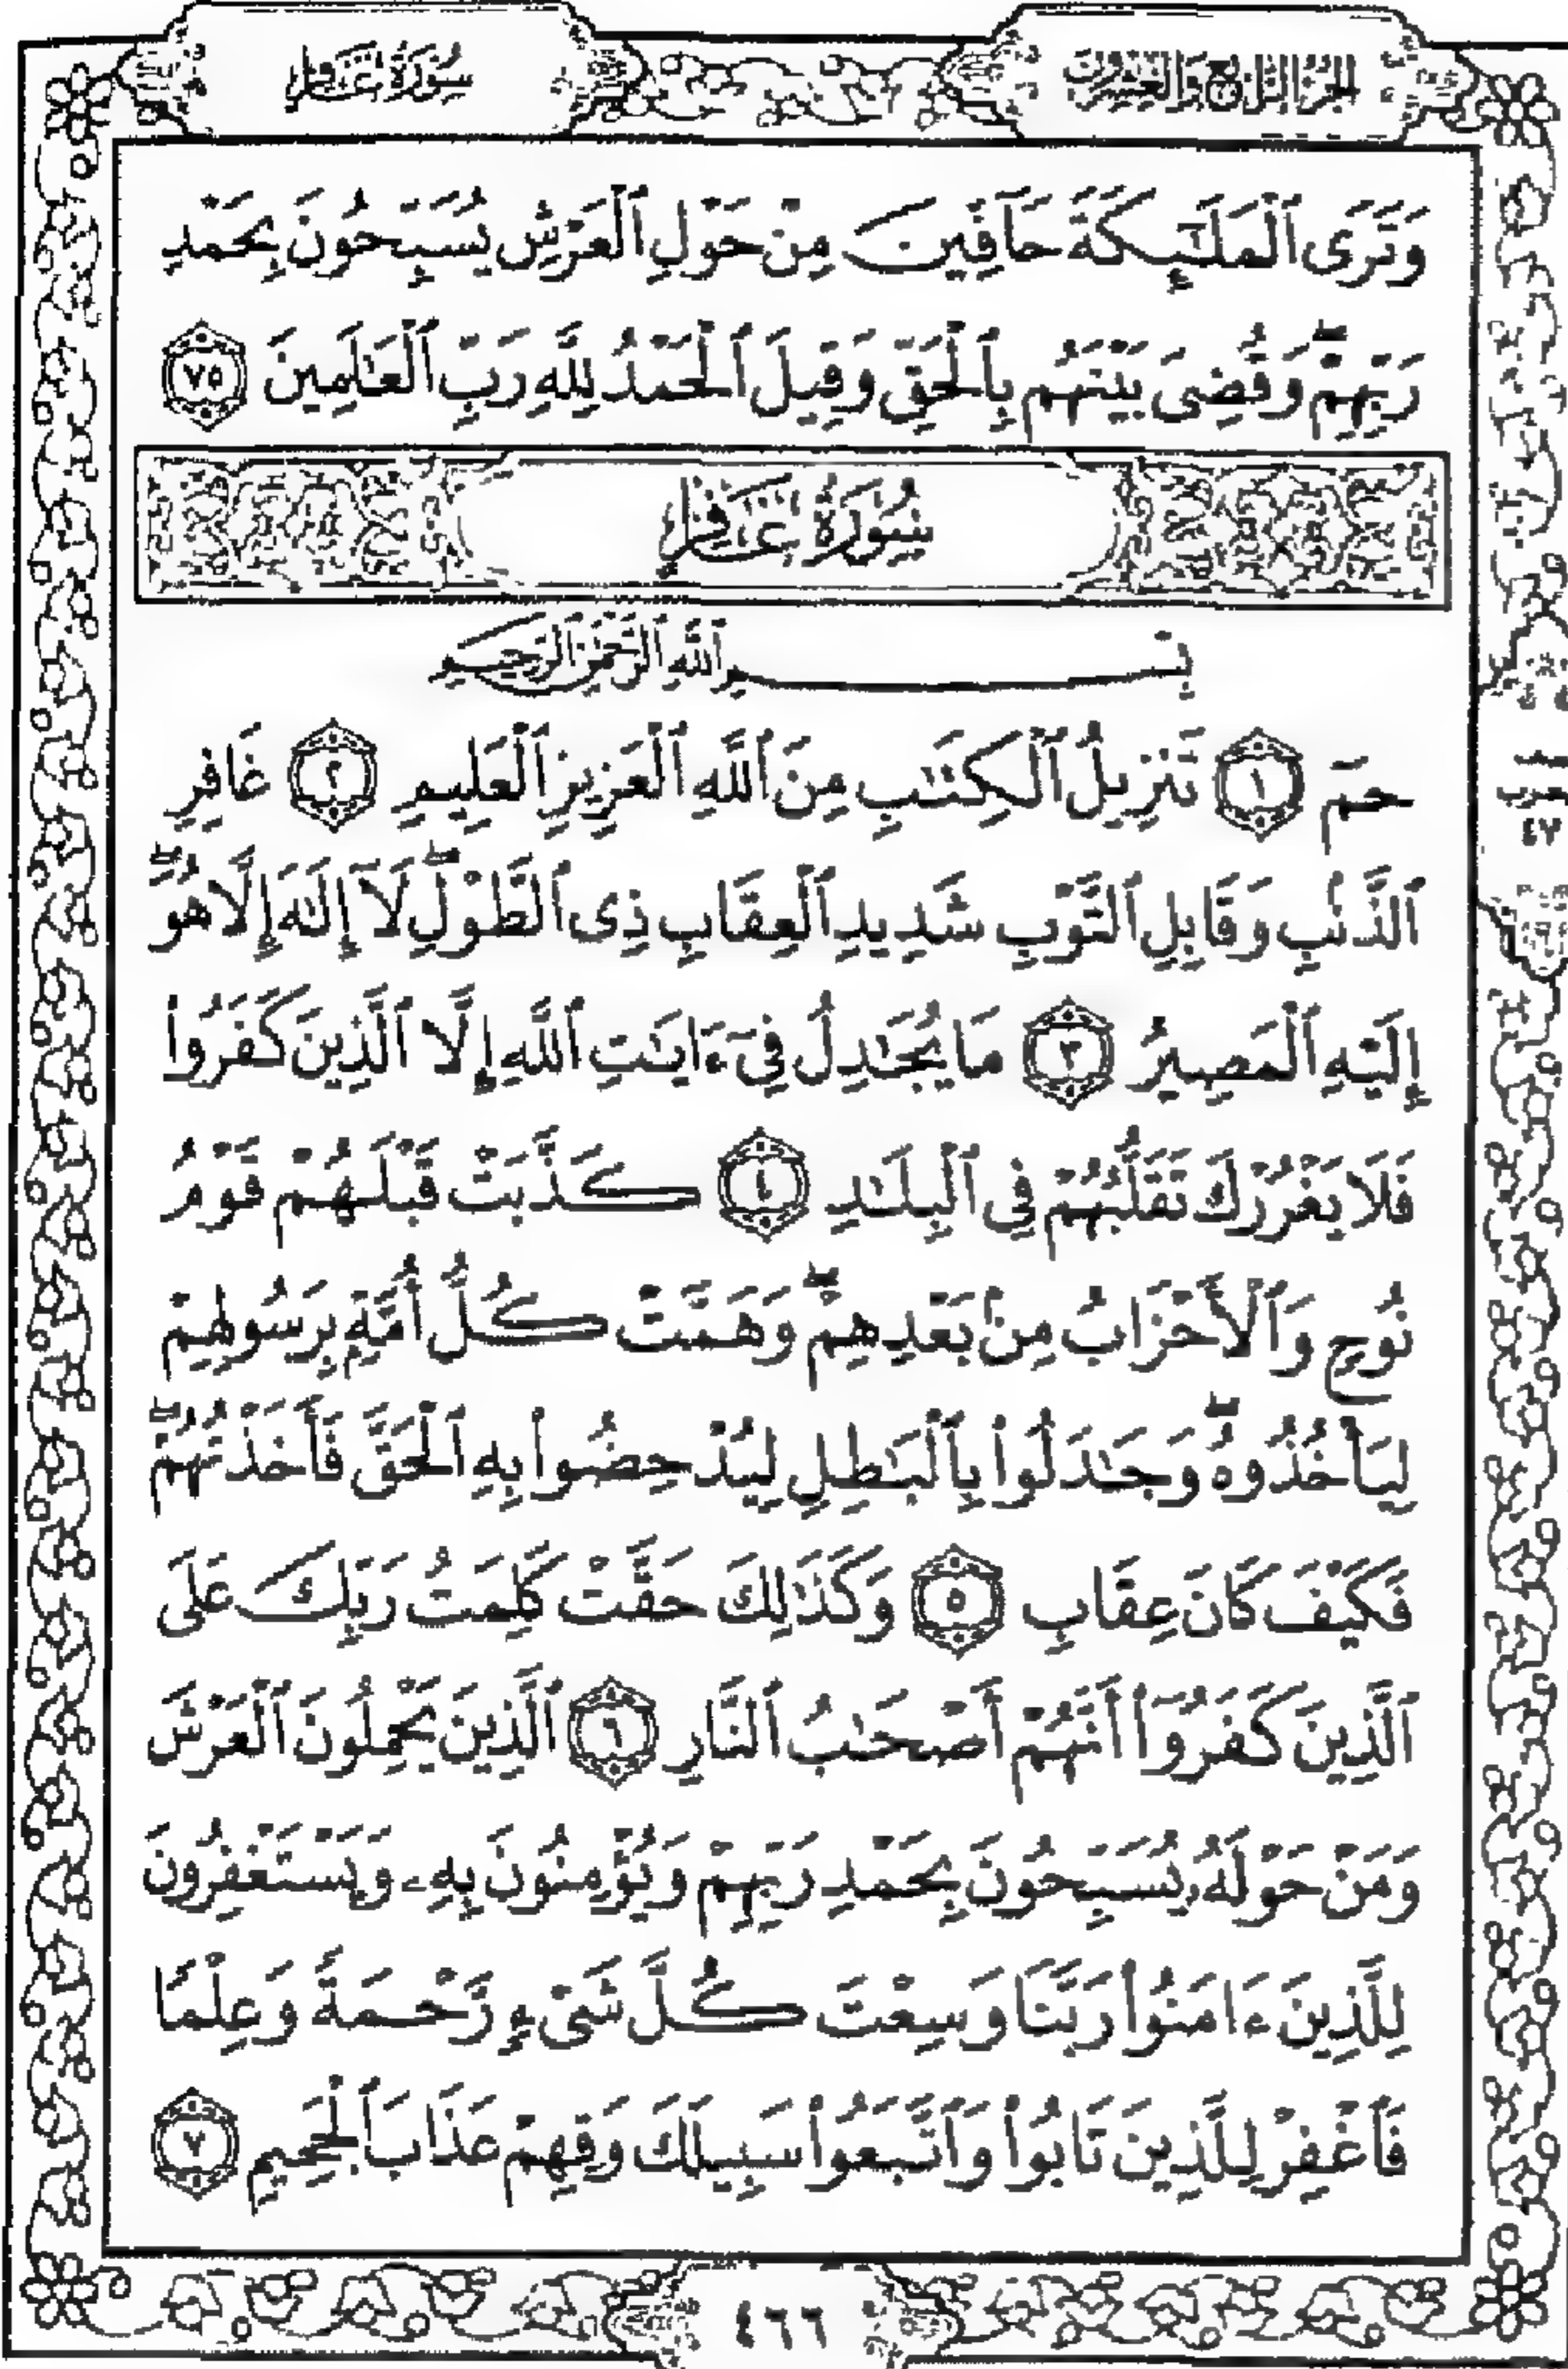 الجزء الرابع والعشرون
سُورَةُ غَافِرٍ
وَتَرَى ٱلْمَلَٰٓئِكَةَ حَآفِّينَ مِنْ حَوْلِ ٱلْعَرْشِ يُسَبِّحُونَ بِحَمْدِ
رَبِّهِمْ ۖ وَقُضِىَ بَيْنَهُم بِٱلْحَقِّ وَقِيلَ ٱلْحَمْدُ لِلَّهِ رَبِّ ٱلْعَٰلَمِينَ ٧٥
سُورَةُ غَافِرٍ
بِسْمِ ٱللَّهِ ٱلرَّحْمَٰنِ ٱلرَّحِيمِ
حمٓ ١ تَنزِيلُ ٱلْكِتَٰبِ مِنَ ٱللَّهِ ٱلْعَزِيزِ ٱلْعَلِيمِ ٢ غَافِرِ
ٱلذَّنۢبِ وَقَابِلِ ٱلتَّوْبِ شَدِيدِ ٱلْعِقَابِ ذِى ٱلطَّوْلِ ۖ لَآ إِلَٰهَ إِلَّا هُوَ ۖ
إِلَيْهِ ٱلْمَصِيرُ ٣ مَا يُجَٰدِلُ فِىٓ ءَايَٰتِ ٱللَّهِ إِلَّا ٱلَّذِينَ كَفَرُوا۟
فَلَا يَغْرُرْكَ تَقَلُّبُهُمْ فِى ٱلْبِلَٰدِ ٤ كَذَّبَتْ قَبْلَهُمْ قَوْمُ
نُوحٍ وَٱلْأَحْزَابُ مِنۢ بَعْدِهِمْ ۖ وَهَمَّتْ كُلُّ أُمَّةٍۭ بِرَسُولِهِمْ
لِيَأْخُذُوهُ ۖ وَجَٰدَلُوا۟ بِٱلْبَٰطِلِ لِيُدْحِضُوا۟ بِهِ ٱلْحَقَّ فَأَخَذْتُهُمْ ۖ
فَكَيْفَ كَانَ عِقَابِ ٥ وَكَذَٰلِكَ حَقَّتْ كَلِمَتُ رَبِّكَ عَلَى
ٱلَّذِينَ كَفَرُوٓا۟ أَنَّهُمْ أَصْحَٰبُ ٱلنَّارِ ٦ ٱلَّذِينَ يَحْمِلُونَ ٱلْعَرْشَ
وَمَنْ حَوْلَهُۥ يُسَبِّحُونَ بِحَمْدِ رَبِّهِمْ وَيُؤْمِنُونَ بِهِۦ وَيَسْتَغْفِرُونَ
لِلَّذِينَ ءَامَنُوا۟ رَبَّنَا وَسِعْتَ كُلَّ شَىْءٍ رَّحْمَةً وَعِلْمًا
فَٱغْفِرْ لِلَّذِينَ تَابُوا۟ وَٱتَّبَعُوا۟ سَبِيلَكَ وَقِهِمْ عَذَابَ ٱلْجَحِيمِ ٧
٤٦٦